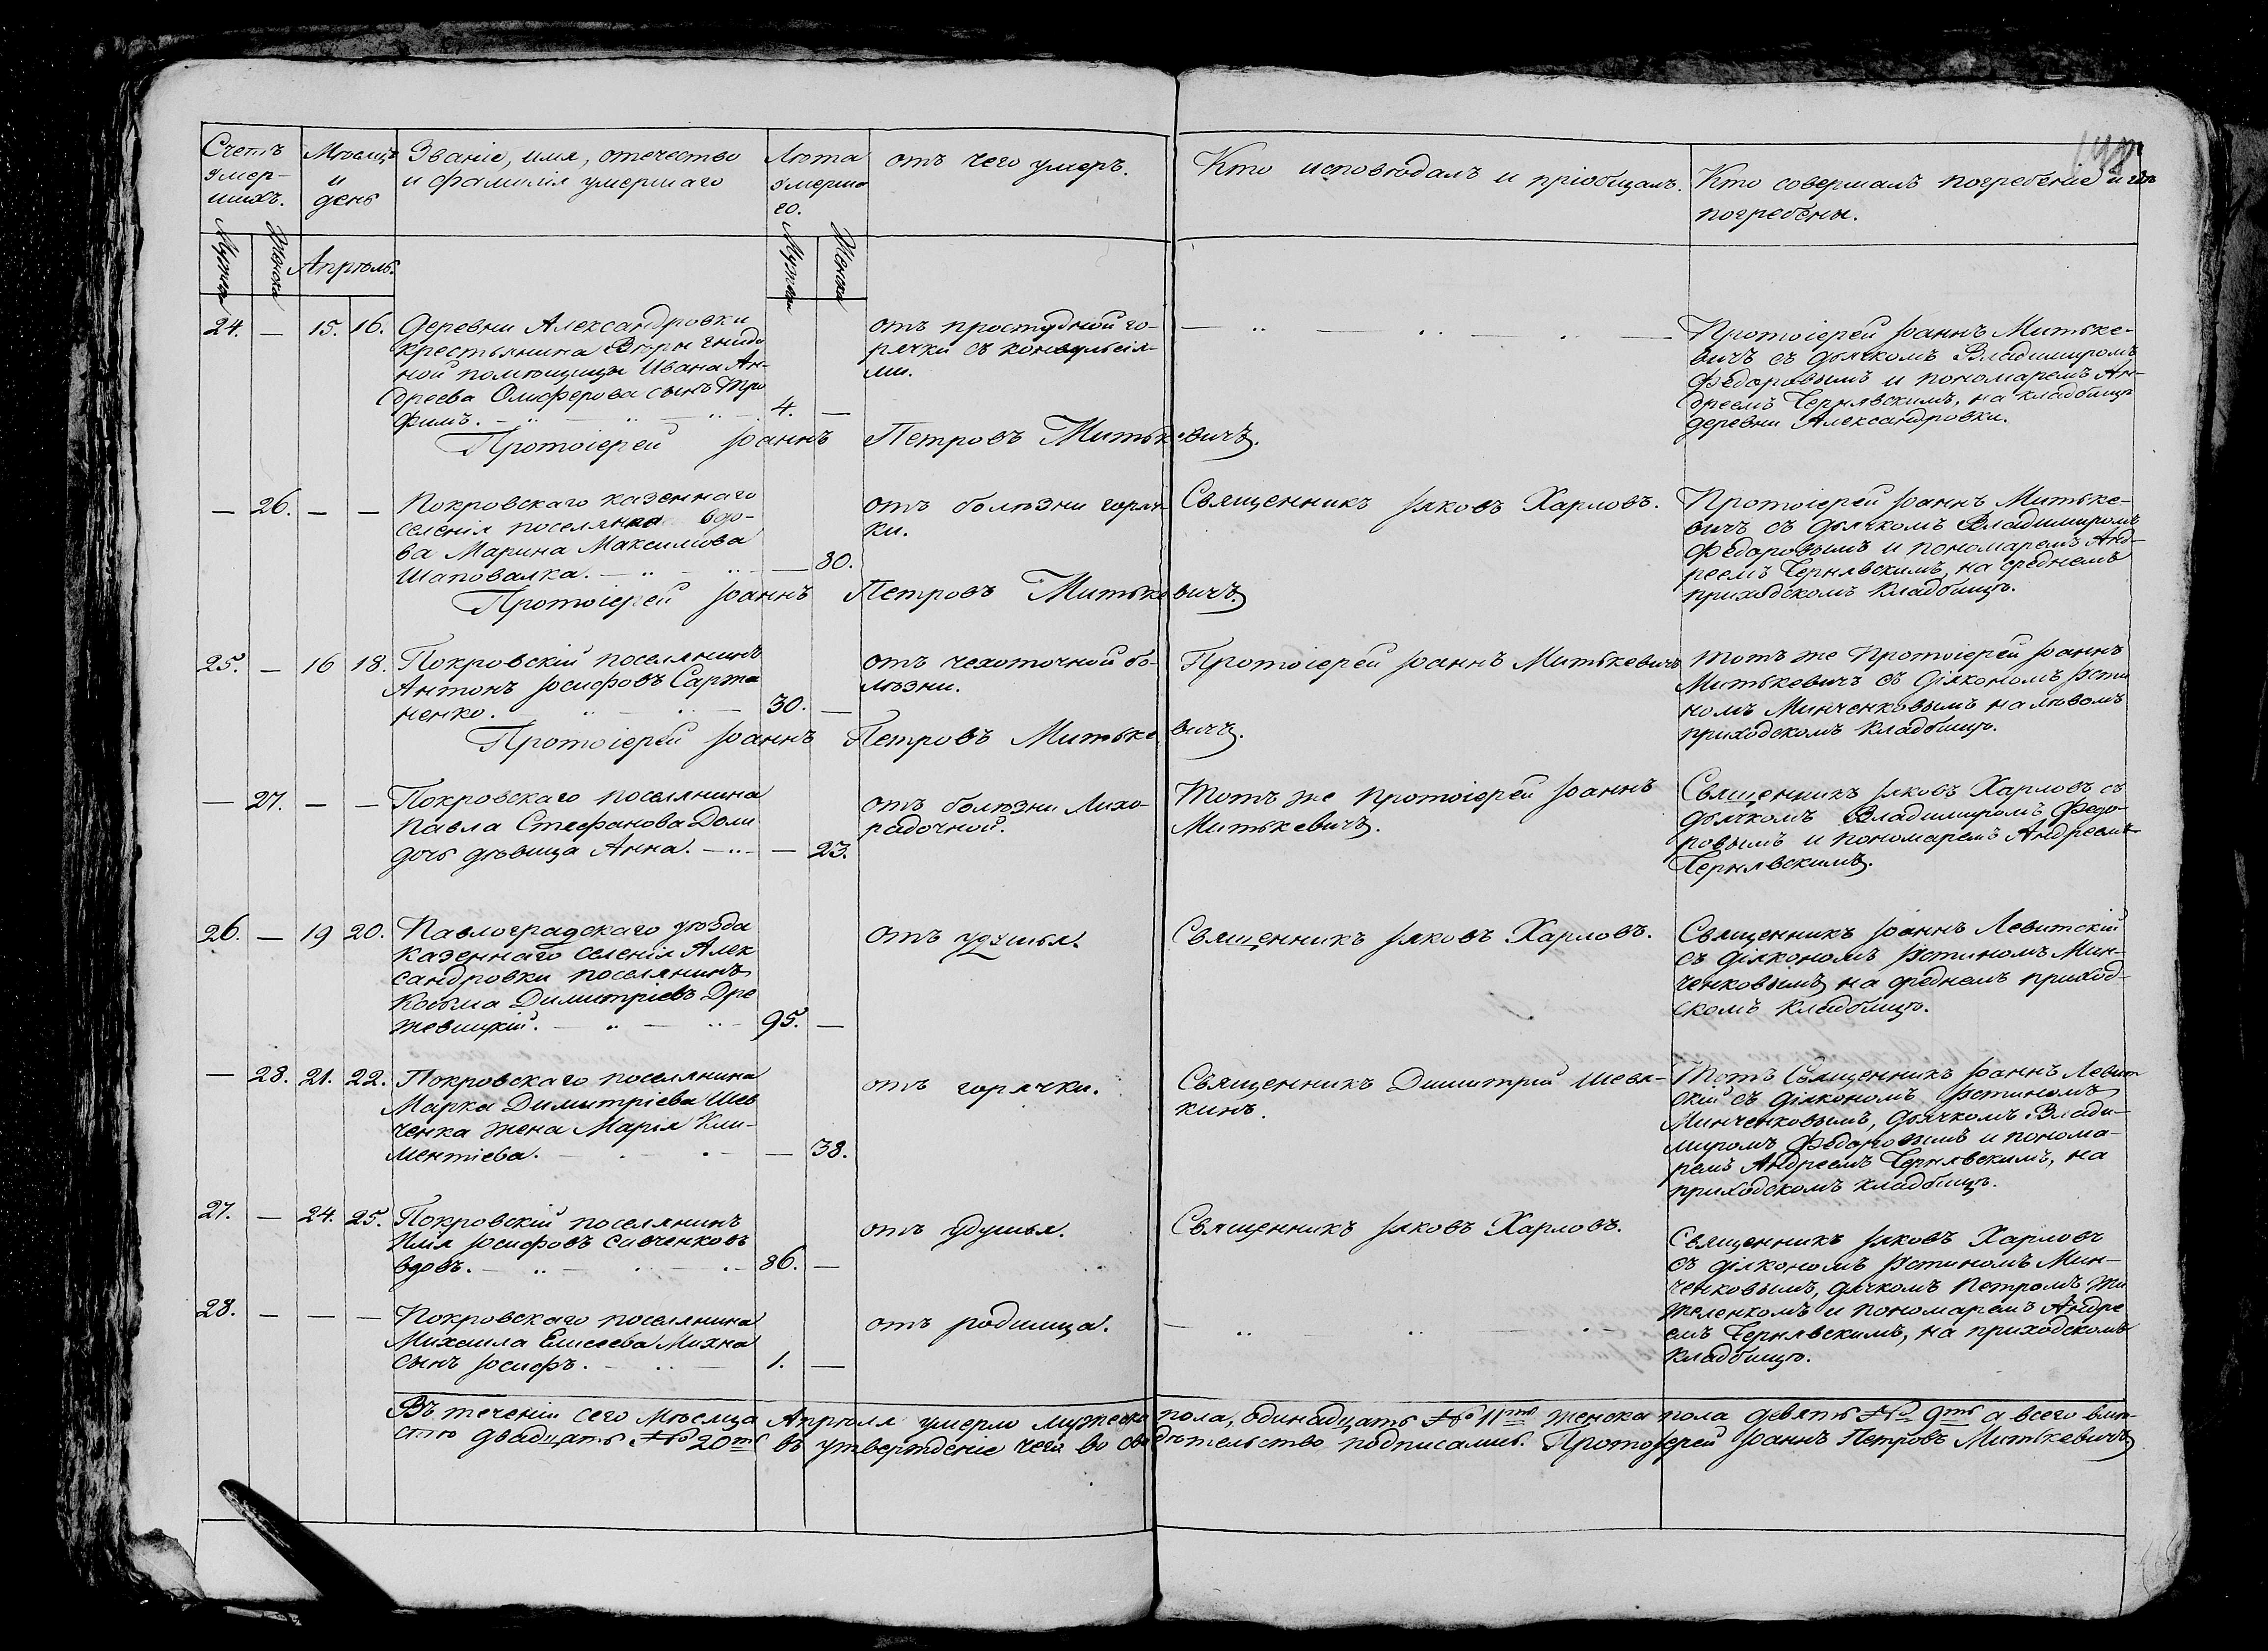 Счетъ умер-
шихъ.
Мѣсяцъ
и
день
Званіе, имя, отечество
и фамилія умершаго
Лѣта
умерша
го.
отъ чего умеръ.
Кто исповѣдалъ и пріобщалъ.
Кто совершалъ погребеніе и гдѣ
погребены.
Апрѣль.
24. — 15. 16.
Деревни Александровки
крестьянина Вѣры
ной помѣщицы Ивана Ан-
дреева Олиферова сынъ Тро
фимъ.
4. —
отъ простудной го-
рячки съ конвульсія-
ми.
Протоіерей Іоаннъ Митьке-
вичъ съ дьячкомъ Владимиромъ
Федоровымъ и пономаремъ Ан-
дреемъ Чернявскимъ, на кладбищѣ
деревни Александровки.
Протоіерей Іоаннъ Петровъ Митькевичъ.
— 26. — —
Покровскаго казеннаго
селенія поселянка вдо-
ва Марина Максимова
Шаповалка.
— 80.
отъ болѣзни горяч-
ки.
Священникъ Іаковъ Харловъ.
Протоіерей Іоаннъ Митьке-
вичъ съ дьячкомъ Владимиромъ
Федоровымъ и пономаремъ Анд-
реемъ Чернявскимъ, на среднемъ
приходскомъ кладбищѣ.
Протоіерей Іоаннъ Петровъ Митькевичъ
25. — 16 18.
Покровскій поселянинъ
Антонъ Іосифовъ Сарта
ненко.
30. —
отъ чехоточной бо-
лѣзни.
Протоіерей Іоаннъ Митькевичъ
Тотъ же Протоіерей Іоаннъ
Митькевичъ съ діякономъ Іусти
номъ Минченковымъ на лѣвомъ
приходскомъ кладбищѣ.
Протоіерей Іоаннъ Петровъ Митькевичъ.
— 27. — —
Покровскаго поселянина
Павла Стефанова Доли
дочь дѣвица Анна.
— 23.
отъ болѣзни Лихо-
радочной.
Тотъ же Протоіерей Іоаннъ
Митькевичъ.
Священникъ Іаковъ Харловъ съ
дьячкомъ Владимиромъ Федо-
ровымъ и пономаремъ Андреемъ
Чернявскимъ.
26. — 19 20.
Павлоградскаго уѣзда
казеннаго селенія Алек
сандровки поселянинъ
Косьма Димитріевъ Дре
жевицкій.
95. —
отъ удушья.
Священникъ Іаковъ Харловъ.
Священникъ Іоаннъ Левитскій
съ діякономъ Іустиномъ Мин-
ченковымъ на среднемъ приход-
скомъ кладбищѣ.
— 28. 21. 22.
Покровскаго поселянина
Марка Димитріева Шев
ченка жена Марія Кли-
ментіева.
— 38.
отъ горячки.
Священникъ Димитрій Шевя-
кинъ.
Тотъ Священникъ Іоаннъ Левит
скій съ діякономъ Іустиномъ
Минченковымъ, дьячкомъ Влади-
миромъ Федоровымъ и понома-
ремъ Андреемъ Чернявскимъ, на
приходскомъ кладбищѣ.
27. — 24. 25.
Покровскій поселянинъ
Илія Іосифовъ Савченковъ
вдовъ.
86. —
отъ удушья.
Священникъ Іаковъ Харловъ.
Священникъ Іаковъ Харловъ
съ діякономъ Іустиномъ Мин-
ченковымъ, дячкомъ Петромъ
и пономаремъ Андре
емъ Чернявскимъ, на приходскомъ
кладбищѣ.
28. — — —
Покровскаго поселянина
Михаила Елисеева Михна
сынъ Іосифъ.
1. —
отъ родимца.
Въ теченіи сего Мѣсяца Апрѣля умерло мужеска пола, одинадцать № 11ть женска пола девять № 9ть а всего вмѣ-
стѣ двадцать № 20ть въ утвержденіе чего во свидѣтельство подписались. Протоіерей Іоаннъ Петровъ Митькевичъ